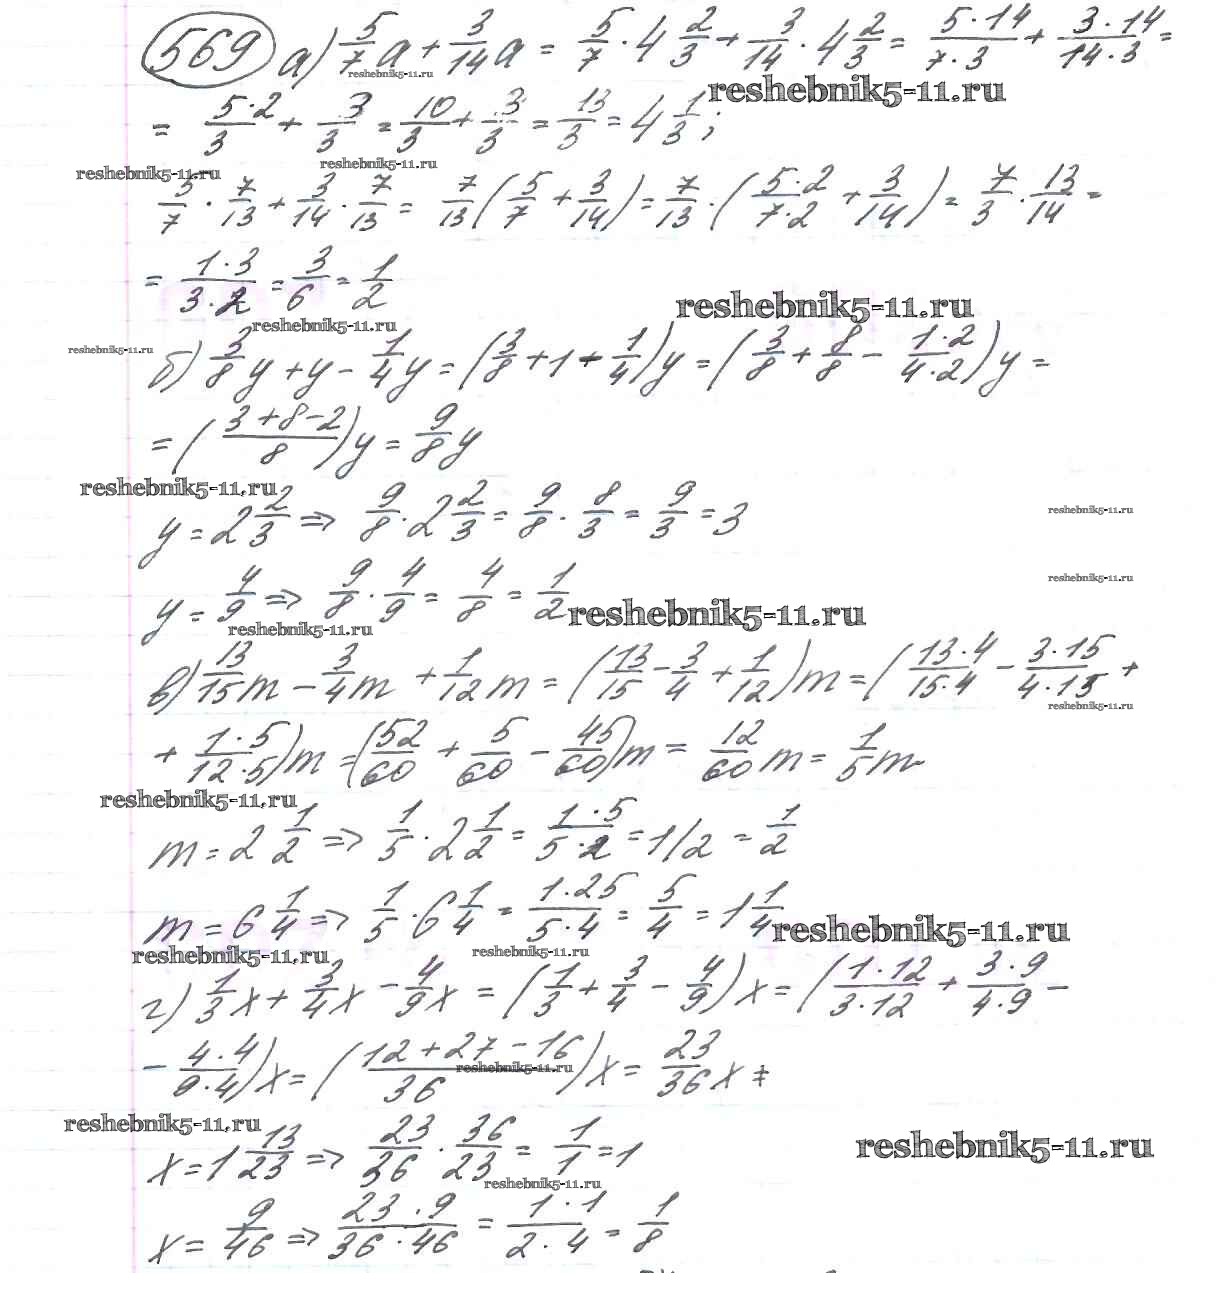 569 а) 5/7 a + 3/14 a = 5/7 · 4 2/3 + 3/14 · 4 2/3 = 5·14/7·3 + 3·14/14·3 =
reshebnik5-11.ru
reshebnik5-11.ru
= 5·2/3 + 3/3 = 10/3 + 3/3 = 13/3 = 4 1/3;
reshebnik5-11.ru
reshebnik5-11.ru
5/7 · 7/13 + 3/14 · 7/13 = 7/13 (5/7 + 3/14) = 7/13 · (5·2/7·2 + 3/14) = 7/3 · 13/14 =
= 1·3/3·2 = 3/6 = 1/2
reshebnik5-11.ru
reshebnik5-11.ru
reshebnik5-11.ru
б) 3/8 y + y - 1/4 y = (3/8 + 1 + 1/4) y = (3/8 + 8/8 - 1·2/4·2) y =
= (3+8-2/8) y = 9/8 y
reshebnik5-11.ru
y = 2 2/3 => 9/8 · 2 2/3 = 9/8 · 8/3 = 9/3 = 3
reshebnik5-11.ru
reshebnik5-11.ru
y = 4/9 => 9/8 · 4/9 = 4/8 = 1/2
reshebnik5-11.ru
reshebnik5-11.ru
в) 13/15 m - 3/4 m + 1/12 m = (13/15 - 3/4 + 1/12) m = (13·4/15·4 - 3·15/4·15 +
reshebnik5-11.ru
+ 1·5/12·5) m = (52/60 + 5/60 - 45/60) m = 12/60 m = 1/5 m
reshebnik5-11.ru
m = 2 1/2 => 1/5 · 2 1/2 = 1·5/5·2 = 1/2 = 1/2
m = 6 1/4 => 1/5 · 6 1/4 = 1·25/5·4 = 5/4 = 1 1/4
reshebnik5-11.ru
reshebnik5-11.ru
reshebnik5-11.ru
г) 1/3 x + 3/4 x - 4/9 x = (1/3 + 3/4 - 4/9) x = (1·12/3·12 + 3·9/4·9 -
- 4·4/9·4) x = (12+27-16/36) x = 23/36 x =
reshebnik5-11.ru
reshebnik5-11.ru
reshebnik5-11.ru
x = 1 13/23 => 23/36 · 36/23 = 1/1 = 1
reshebnik5-11.ru
x = 9/46 => 23·9/36·46 = 1·1/2·4 = 1/8